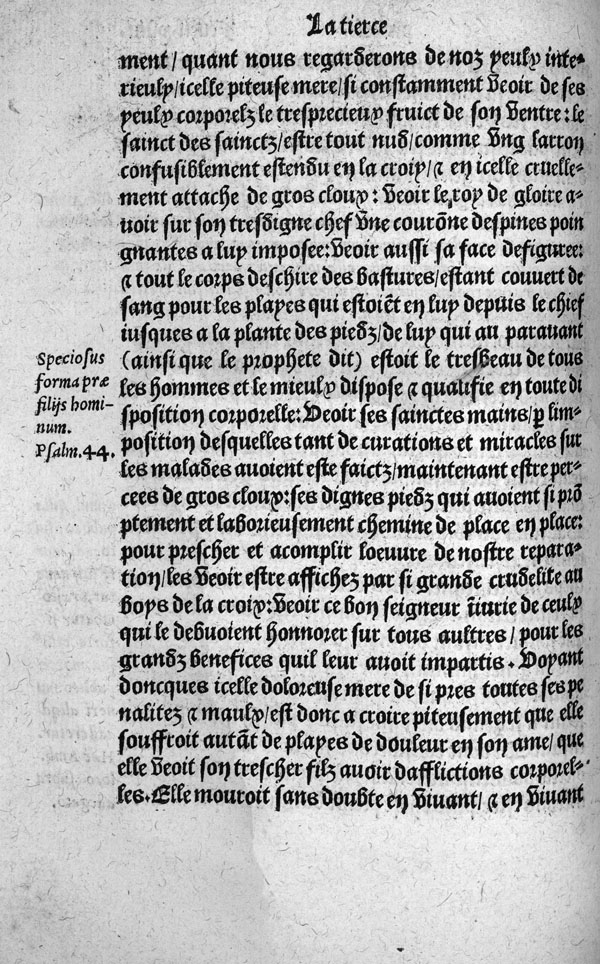 La tierce
ment/ quant nous regarderons de noz yeulx inte-
rieulx/icelle piteuse mere/si constamment veoir de ses
yeulx corporelz le tresprecieux fruict de son ventre: le
sainct des sainctz/estre tout nud/comme vng larron
confusiblement estendu en la croix/⁊ en icelle cruelle-
ment attache de gros cloux: veoir le roy de gloire a-
uoir sur son tresdigne chef vne courõne despines poin
gnantes a luy imposee:veoir aussi sa face defiguree:
⁊ tout le corps deschire des bastures/estant couuert de
sang pour les playes qui estoiẽt en luy depuis le chief
iusques a la plante des piedz/de luy qui au parauant
(ainsi que le prophete dit) estoit le tresbeau de tous
les hommes et le mieulx dispose ⁊ qualifie en toute di
sposition corporelle:veoir ses sainctes mains/ꝑ lim-
position desquelles tant de curations et miracles sur
les malades auoient este faictz/maintenant estre per-
cees de gros cloux:ses dignes piedz qui auoient si prõ
ptement et laborieusement chemine de place en place:
pour prescher et acomplir loeuure de nostre repara-
tion/les veoir estre affichez par si grande crudelite au
boys de la croix:veoir ce bon seigneur ĩiurie de ceulx
qui le debuoient honnorer sur tous aultres/ pour les
grandz benefices quil leur auoit impartis. Voyant
doncques icelle doloreuse mere de si pres toutes ses pe
nalitez ⁊ maulx/est donc a croire piteusement que elle
souffroit autãt de playes de douleur en son ame/ que
elle veoit son trescher filz auoir dafflictions corporel-
les. Elle mouroit sans doubte en viuant/ ⁊ en viuant
Speciosus
forma præ
filijs homi-
num.
Psalm.44.